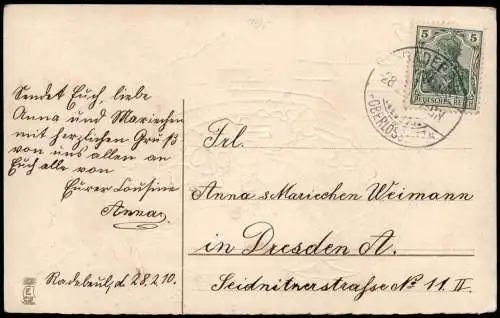 Sendet Euch, liebe
Anna und Mariechen
mit herzlichen Gruß
von uns allen an
Euch alle von
Eurer Cousine
Anna
Radebeul, d. 28.2.10.
5
5
DEUTSCHES REICH
28
(OBERLÖSSNITZ)
Frl.
Anna & Mariechen Weimann
in Dresden A.
Seidnitzerstrasse No. 11. II.